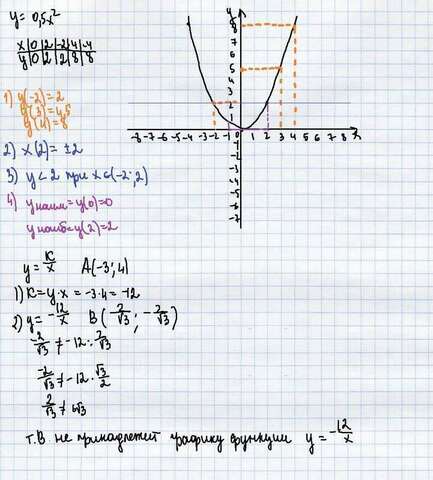 y = 0,5x²
x | 0 | 2 | -2 | 4 | -4
y | 0 | 2 | 2 | 8 | 8
1) y(-2) = 2
y(3) = 4,5
y(4) = 8
2) x(2) = ±2
3) y < 2 при x ∈ (-2; 2)
4) y наим = y(0) = 0
y наиб = y(2) = 2
y
8
7
6
5
4
3
2
1
-8 -7 -6 -5 -4 -3 -2 -1 0 1 2 3 4 5 6 7 8 x
-1
-2
-3
-4
-5
-6
-7
y = K/x A(-3; 4)
1) K = y · x = -3 · 4 = -12
2) y = -12/x B(2/√3; -2/√3)
-2/√3 ≠ -12 : 2/√3
-2/√3 ≠ -12 · √3/2
2/√3 ≠ 6√3
т.В не принадлежит графику функции y = -12/x